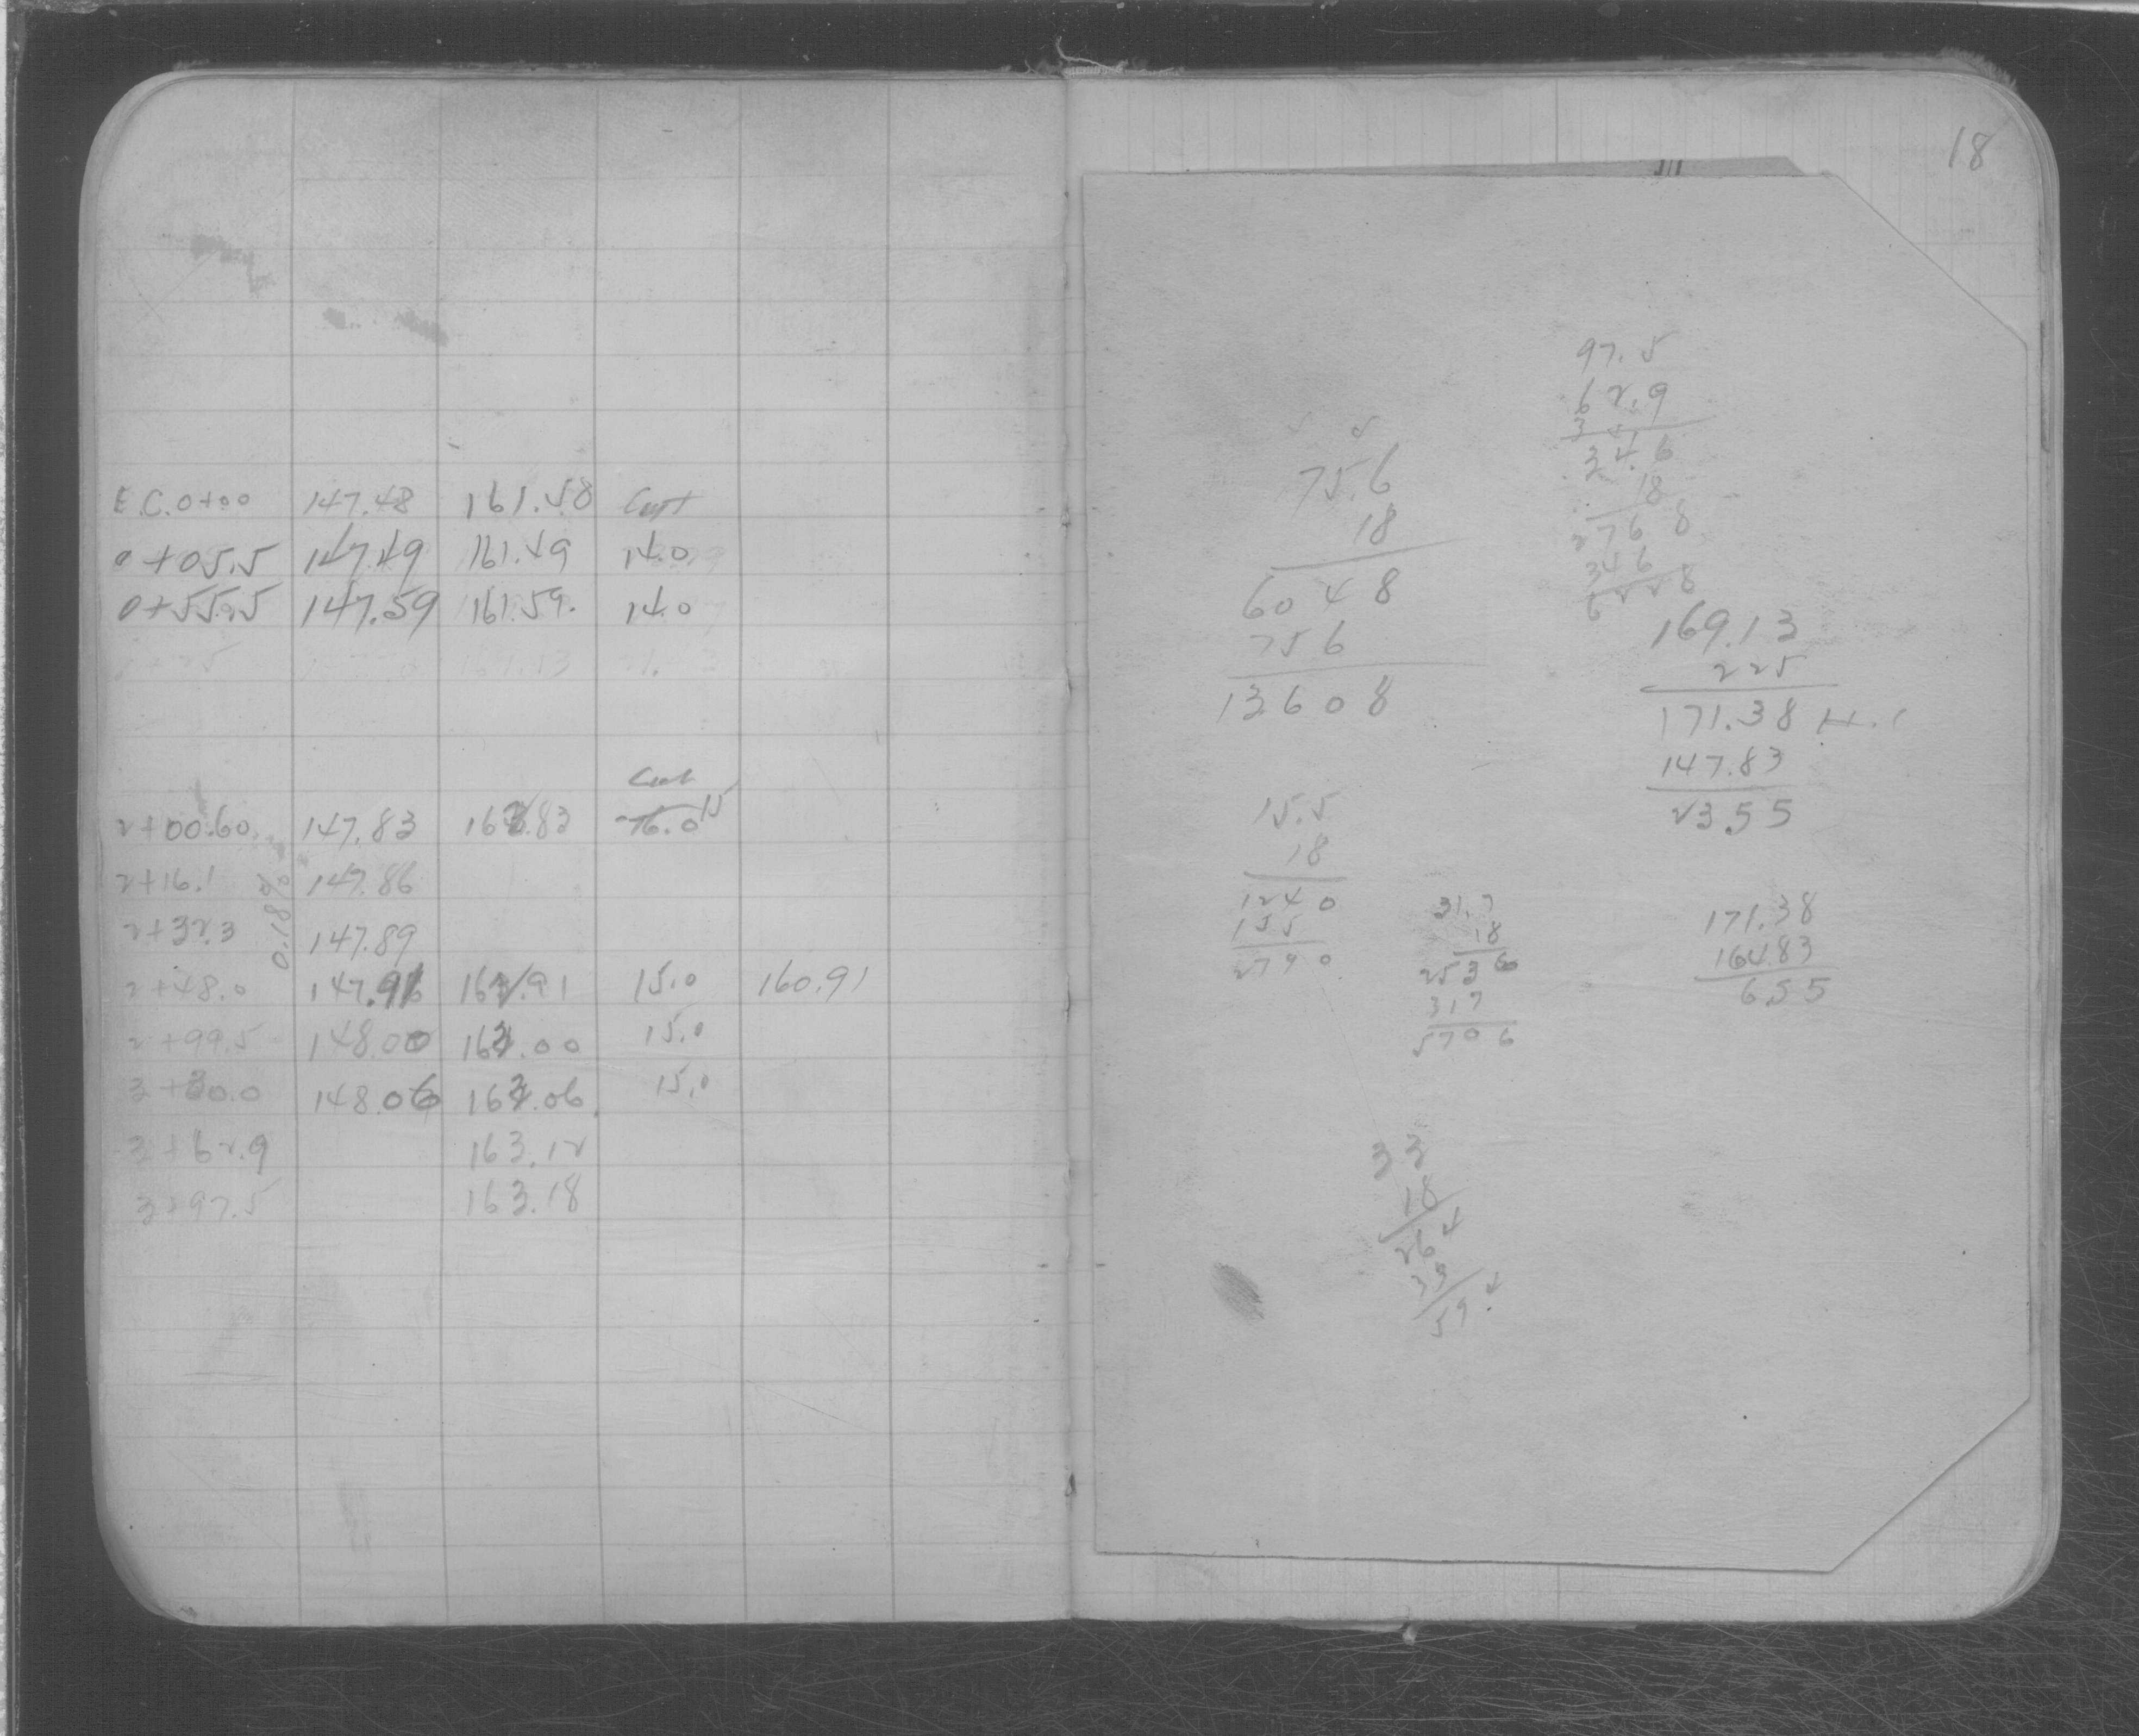 E.C. 0+00 147.48 161.58 Cut
0+05.5 147.49 161.49 14.0
0+55.5 147.59 161.59. 14.0
Cut
2+00.60 147.83 163.83 16.0 15
2+16.1 147.86
0.18%
2+32.3 147.89
2+48.0 147.91 162.91 15.0 160.91
2+99.5 148.00 163.00 15.0
3+30.0 148.06 163.06 15.0
3+62.9 163.12
3+97.5 163.18
18
97.5
62.9
34.6
18
2768
346
6228
75.6
18
6048
756
13608
169.13
225
171.38 H.I
147.83
23.55
15.5
18
1240
155
2790
31.7
18
2536
317
5706
171.38
164.83
6.55
33
18
264
33
594